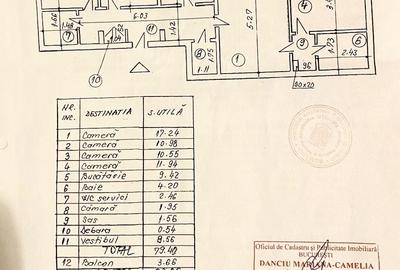 6.03
5.27
4
1.66
7
11
1.42
8
1.75
1.11
1
9
1.73
2.43
6
96
90x20
10
NR. INC.
DESTINATIA
S. UTILĂ
1 Cameră 17.24
2 Cameră 10.98
3 Cameră 10.55
4 Cameră 11.94
5 Bucătărie 9.42
6 Baie 4.20
7 WC servici 2.46
8 Cămară 1.95
9 Sas 1.56
10 Debara 0.54
11 Vestibul 8.56
TOTAL 79.40
12 Balcon 3.06
Oficiul de Cadastru și Publicitate Imobiliară
BUCUREȘTI
DANCIU MARIANA-CAMELIA